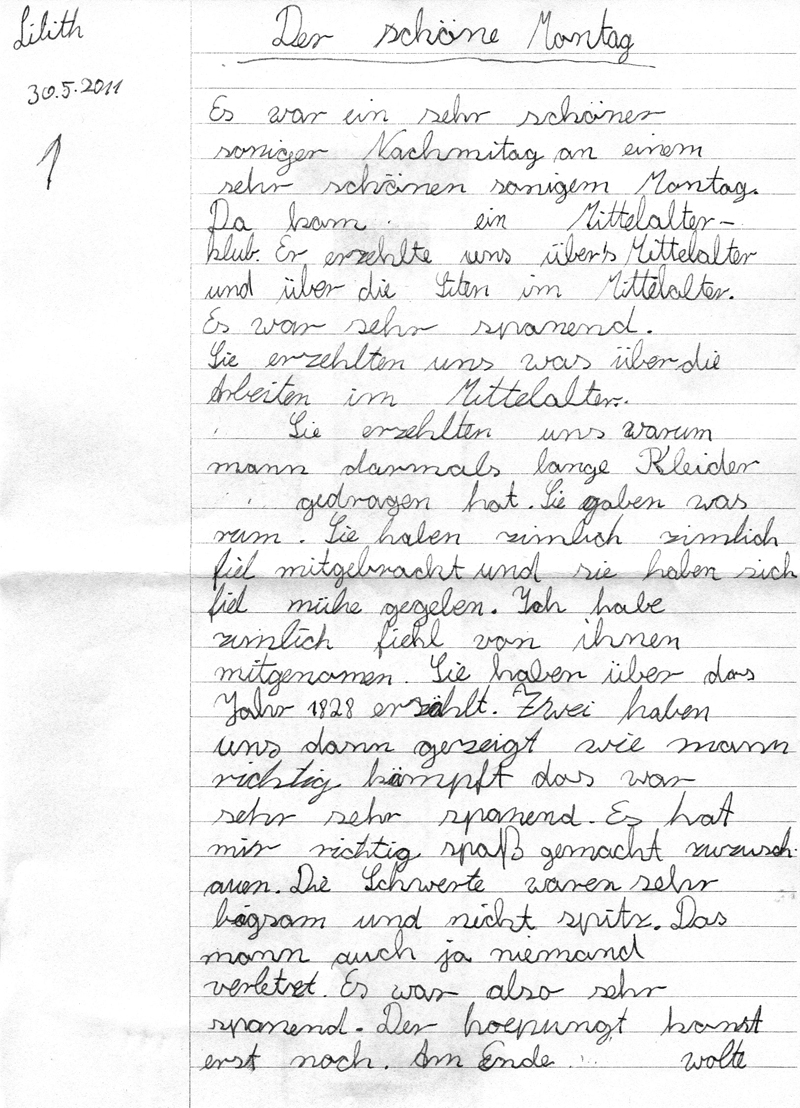 Lilith
Der schöne Montag
30.5.2011
1
Es war ein sehr schöner
soniger Nachmitag an einem
sehr schönen sonigem Montag.
Da kam ein Mittelalter-
klub. Er erzehlte uns über's Mittelalter
und über die Siten im Mittelalter.
Es war sehr spanend.
Sie erzehlten uns was über die
Arbeiten im Mittelalter.
Sie erzehlten uns warum
mann darmals lange Kleider
gedragen hat. Sie gaben was
rum. Sie haben zimlich zimlich
fiel mitgebracht und sie haben sich
fiel mühe gegeben. Ich habe
zimlich fiehl von ihnen
mitgenomen. Sie haben über das
Jahr 1828 erzählt. Zwei haben
uns dann gezeigt wie mann
richtig kämpft das war
sehr sehr spanend. Es hat
mir richtig spaß gemacht zuzusch-
auen. Die Schwerte waren sehr
bigsam und nicht spitz. Das
mann auch ja niemand
verletzt. Es war also sehr
spanend. Der hoepungt komst
erst noch. Am Ende wolte